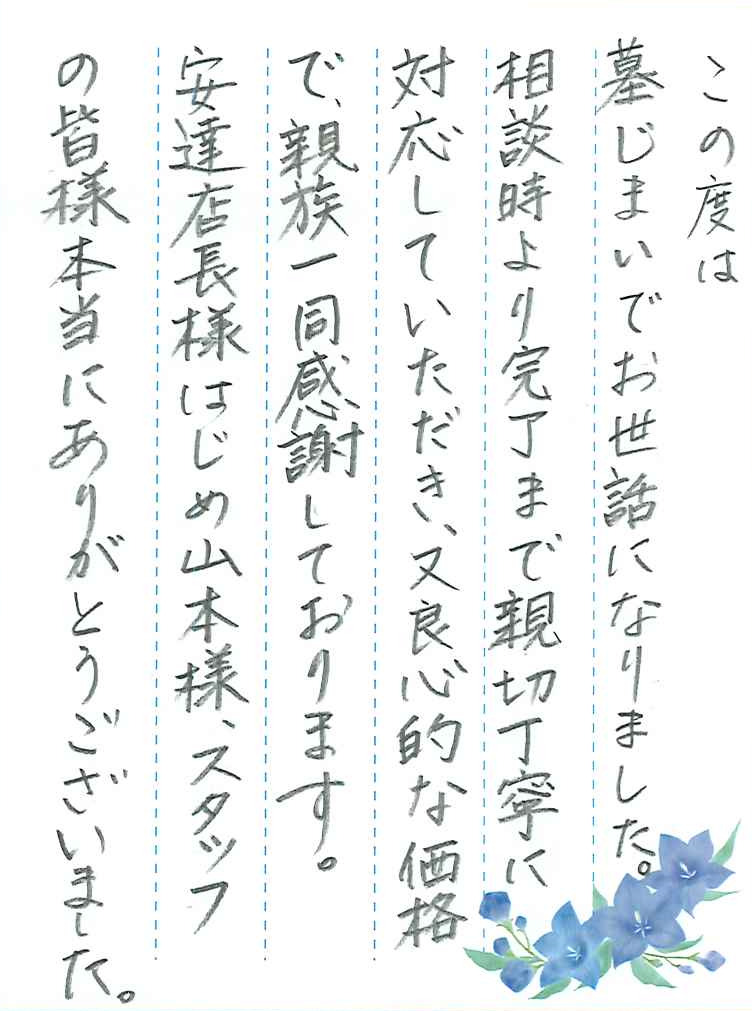 この度は
墓じまいでお世話になりました。
相談時より完了まで親切丁寧に
対応していただき、又良心的な価格
で、親族一同感謝しております。
安達店長様はじめ山本様、スタッフ
の皆様本当にありがとうございました。